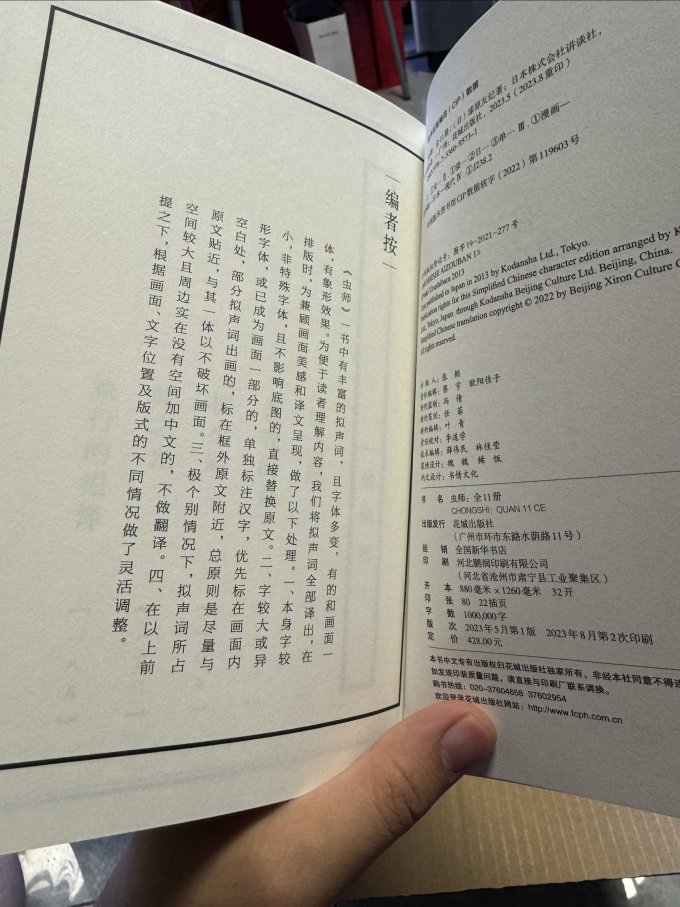 编者按
《虫师》一书中有丰富的拟声词，且字体多变，有的和画面一
体，有象形效果。为便于读者理解内容，我们将拟声词全部译出，在
排版时，为兼顾画面美感和译文呈现，做了以下处理。一、本身字较
小，非特殊字体，且不影响底图的，直接替换原文。二、字较大或异
形字体，或已成为画面一部分的，单独标注汉字，优先标在画面内
空白处，部分拟声词出画的，标在框外原文附近，总原则是尽量与
原文贴近，与其一体以不破坏画面。三、极个别情况下，拟声词所占
空间较大且周边实在没有空间加中文的，不做翻译。四、在以上前
提之下，根据画面、文字位置及版式的不同情况做了灵活调整。
(CIP) 数据
全11册 / (日) 漆原友纪著；日本株式会社讲谈社，
广州：花城出版社，2023.5 (2023.8重印)
978-7-5360-9573-1
Ⅱ.①漆…②日…③单…Ⅲ.①漫画—
日本—现代 Ⅳ.①J238.2
CIP数据核字（2022）第119603号
图字 19-2021-277号
MUSHISHI AIZOUBAN 1
Urushibara 2013
published in Japan in 2013 by Kodansha Ltd., Tokyo.
rights for this Simplified Chinese character edition arranged by K
Ltd, Tokyo, Japan through Kodansha Beijing Culture Ltd. Beijing, China.
Simplified Chinese translation copyright © 2022 by Beijing Xiron Culture G
All rights reserved.
出版人：张 懿
责任编辑：蔡 宇 欧阳佳子
特约监制：冯 倩
特约策划：任 菲
特约编辑：叶 青
责任校对：李道学
技术编辑：薛伟民 林佳莹
装帧设计：魏 魏 稀 饭
内文设计：书情文化
书 名 虫师：全11册
CHONGSHI：QUAN 11 CE
出版发行 花城出版社
（广州市环市东路水荫路11号）
经 销 全国新华书店
印 刷 河北鹏润印刷有限公司
（河北省沧州市肃宁县工业聚集区）
开 本 880毫米×1260毫米 32开
印 张 80 22插页
字 数 1000,000字
版 次 2023年5月第1版 2023年8月第2次印刷
定 价 428.00元
本书中文专有出版权归花城出版社独家所有，非经本社同意不得连
如发现印装质量问题，请直接与印刷厂联系调换。
购书热线：020-37604658 37602954
欢迎登录花城出版社网站：http://www.fcph.com.cn